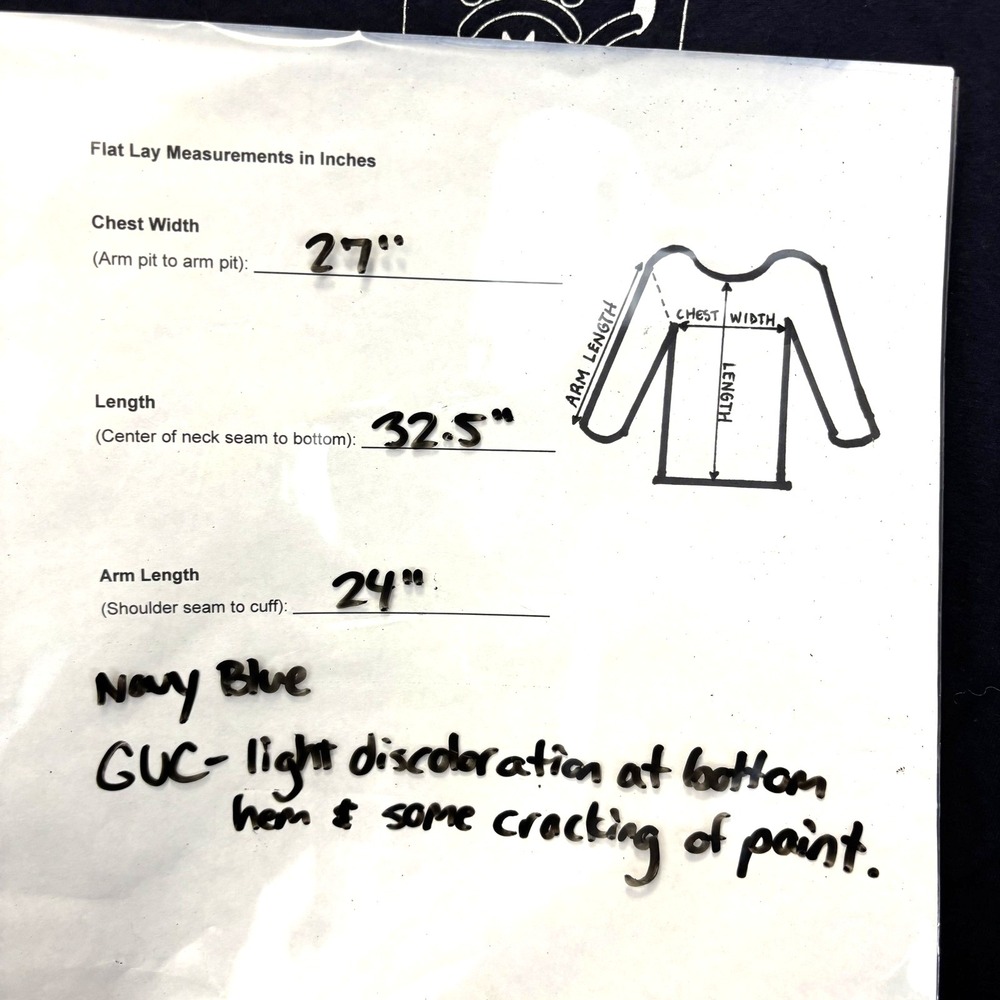 M
Flat Lay Measurements in Inches
Chest Width
(Arm pit to arm pit): 27"
CHEST WIDTH
ARM LENGTH
LENGTH
Length
(Center of neck seam to bottom): 32.5"
Arm Length
(Shoulder seam to cuff): 24"
Navy Blue
GUC- light discoloration at bottom
hem & some cracking of paint.